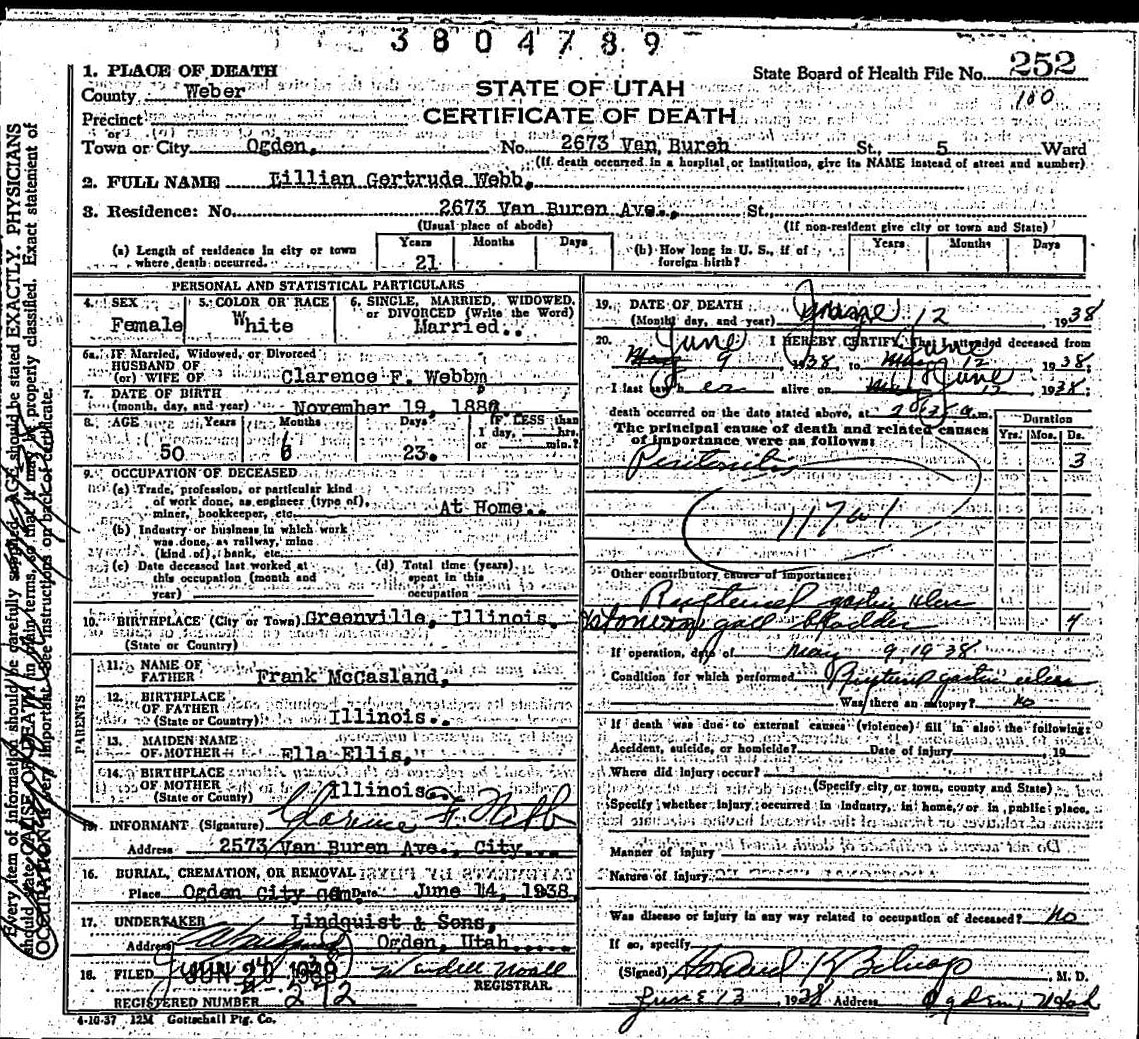 3804789
1. PLACE OF DEATH
State Board of Health File No. 252
County Weber
STATE OF UTAH
100
Precinct
CERTIFICATE OF DEATH
or
Town or City Ogden, No. 2673 Van Buren St., 5 Ward
(If death occurred in a hospital or institution, give its NAME instead of street and number)
2. FULL NAME Lillian Gertrude Webb,
3. Residence: No. 2673 Van Buren Ave., St.
(Usual place of abode) (If non-resident give city or town and State)
(a) Length of residence in city or town where death occurred. Years 21 Months Days
(b) How long in U. S., if of foreign birth? Years Months Days
PERSONAL AND STATISTICAL PARTICULARS
4. SEX Female
5. COLOR OR RACE White
6. SINGLE, MARRIED, WIDOWED, or DIVORCED (Write the Word) Married..
6a. IF Married, Widowed, or Divorced
HUSBAND OF
(or) WIFE OF Clarence F. Webbm
7. DATE OF BIRTH
(month, day, and year) November 19, 188
8. AGE Years 50 Months 6 Days 23.
IF LESS than
1 day, hrs.
or min.?
9. OCCUPATION OF DECEASED
(a) Trade, profession, or particular kind
of work done, as engineer (type of),
miner, bookkeeper, etc. At Home..
(b) Industry or business in which work
was done, as railway, mine
(kind of), bank, etc.
(c) Date deceased last worked at
this occupation (month and
year)
(d) Total time (years)
spent in this
occupation
10. BIRTHPLACE (City or Town) Greenville, Illinois.
(State or Country)
PARENTS
11. NAME OF
FATHER Frank McCasland,
12. BIRTHPLACE
OF FATHER
(State or Country) Illinois..
13. MAIDEN NAME
OF MOTHER Ella Ellis,
14. BIRTHPLACE
OF MOTHER
(State or Country) Illinois..
15. INFORMANT (Signature) Clarence F. Webb
Address 2573 Van Buren Ave., City...
16. BURIAL, CREMATION, OR REMOVAL
Place Ogden City Cem Date June 14, 1938
17. UNDERTAKER Lindquist & Sons,
Address Ogden, Utah.....
18. FILED JUN 1938 Wendell Noall
REGISTRAR
REGISTERED NUMBER 252
4-10-37 12M Gottschall Ptg. Co.
19. DATE OF DEATH
(Month, day, and year) June 12, 1938
20. I HEREBY CERTIFY, That I attended deceased from
June 9, 1938, to June 12 1938,
I last saw her alive on June 12 1938,
death occurred on the date stated above, at a.m.
The principal cause of death and related causes
of importance were as follows:
Duration
Yrs. Mos. Ds.
Peritonitis 3
Other contributory causes of importance:
Ruptured gastric ulcer
Stones in gall bladder 4
If operation, date of May 9, 1938
Condition for which performed Ruptured gastric ulcer
Was there an autopsy? No
If death was due to external causes (violence) fill in also the following:
Accident, suicide, or homicide? Date of injury 19
Where did injury occur?
(Specify city or town, county and State)
Specify whether injury occurred in industry, in home, or in public place.
Manner of injury
Nature of injury
Was disease or injury in any way related to occupation of deceased? No
If so, specify
(Signed) Howard K Belnap M. D.
June 13, 1938 Address Ogden, Utah
Every item of information should be carefully supplied. AGE should be stated EXACTLY. PHYSICIANS
should state CAUSE OF DEATH in plain terms, so that it may be properly classified. Exact statement of
OCCUPATION is very important. See instructions on back of certificate.